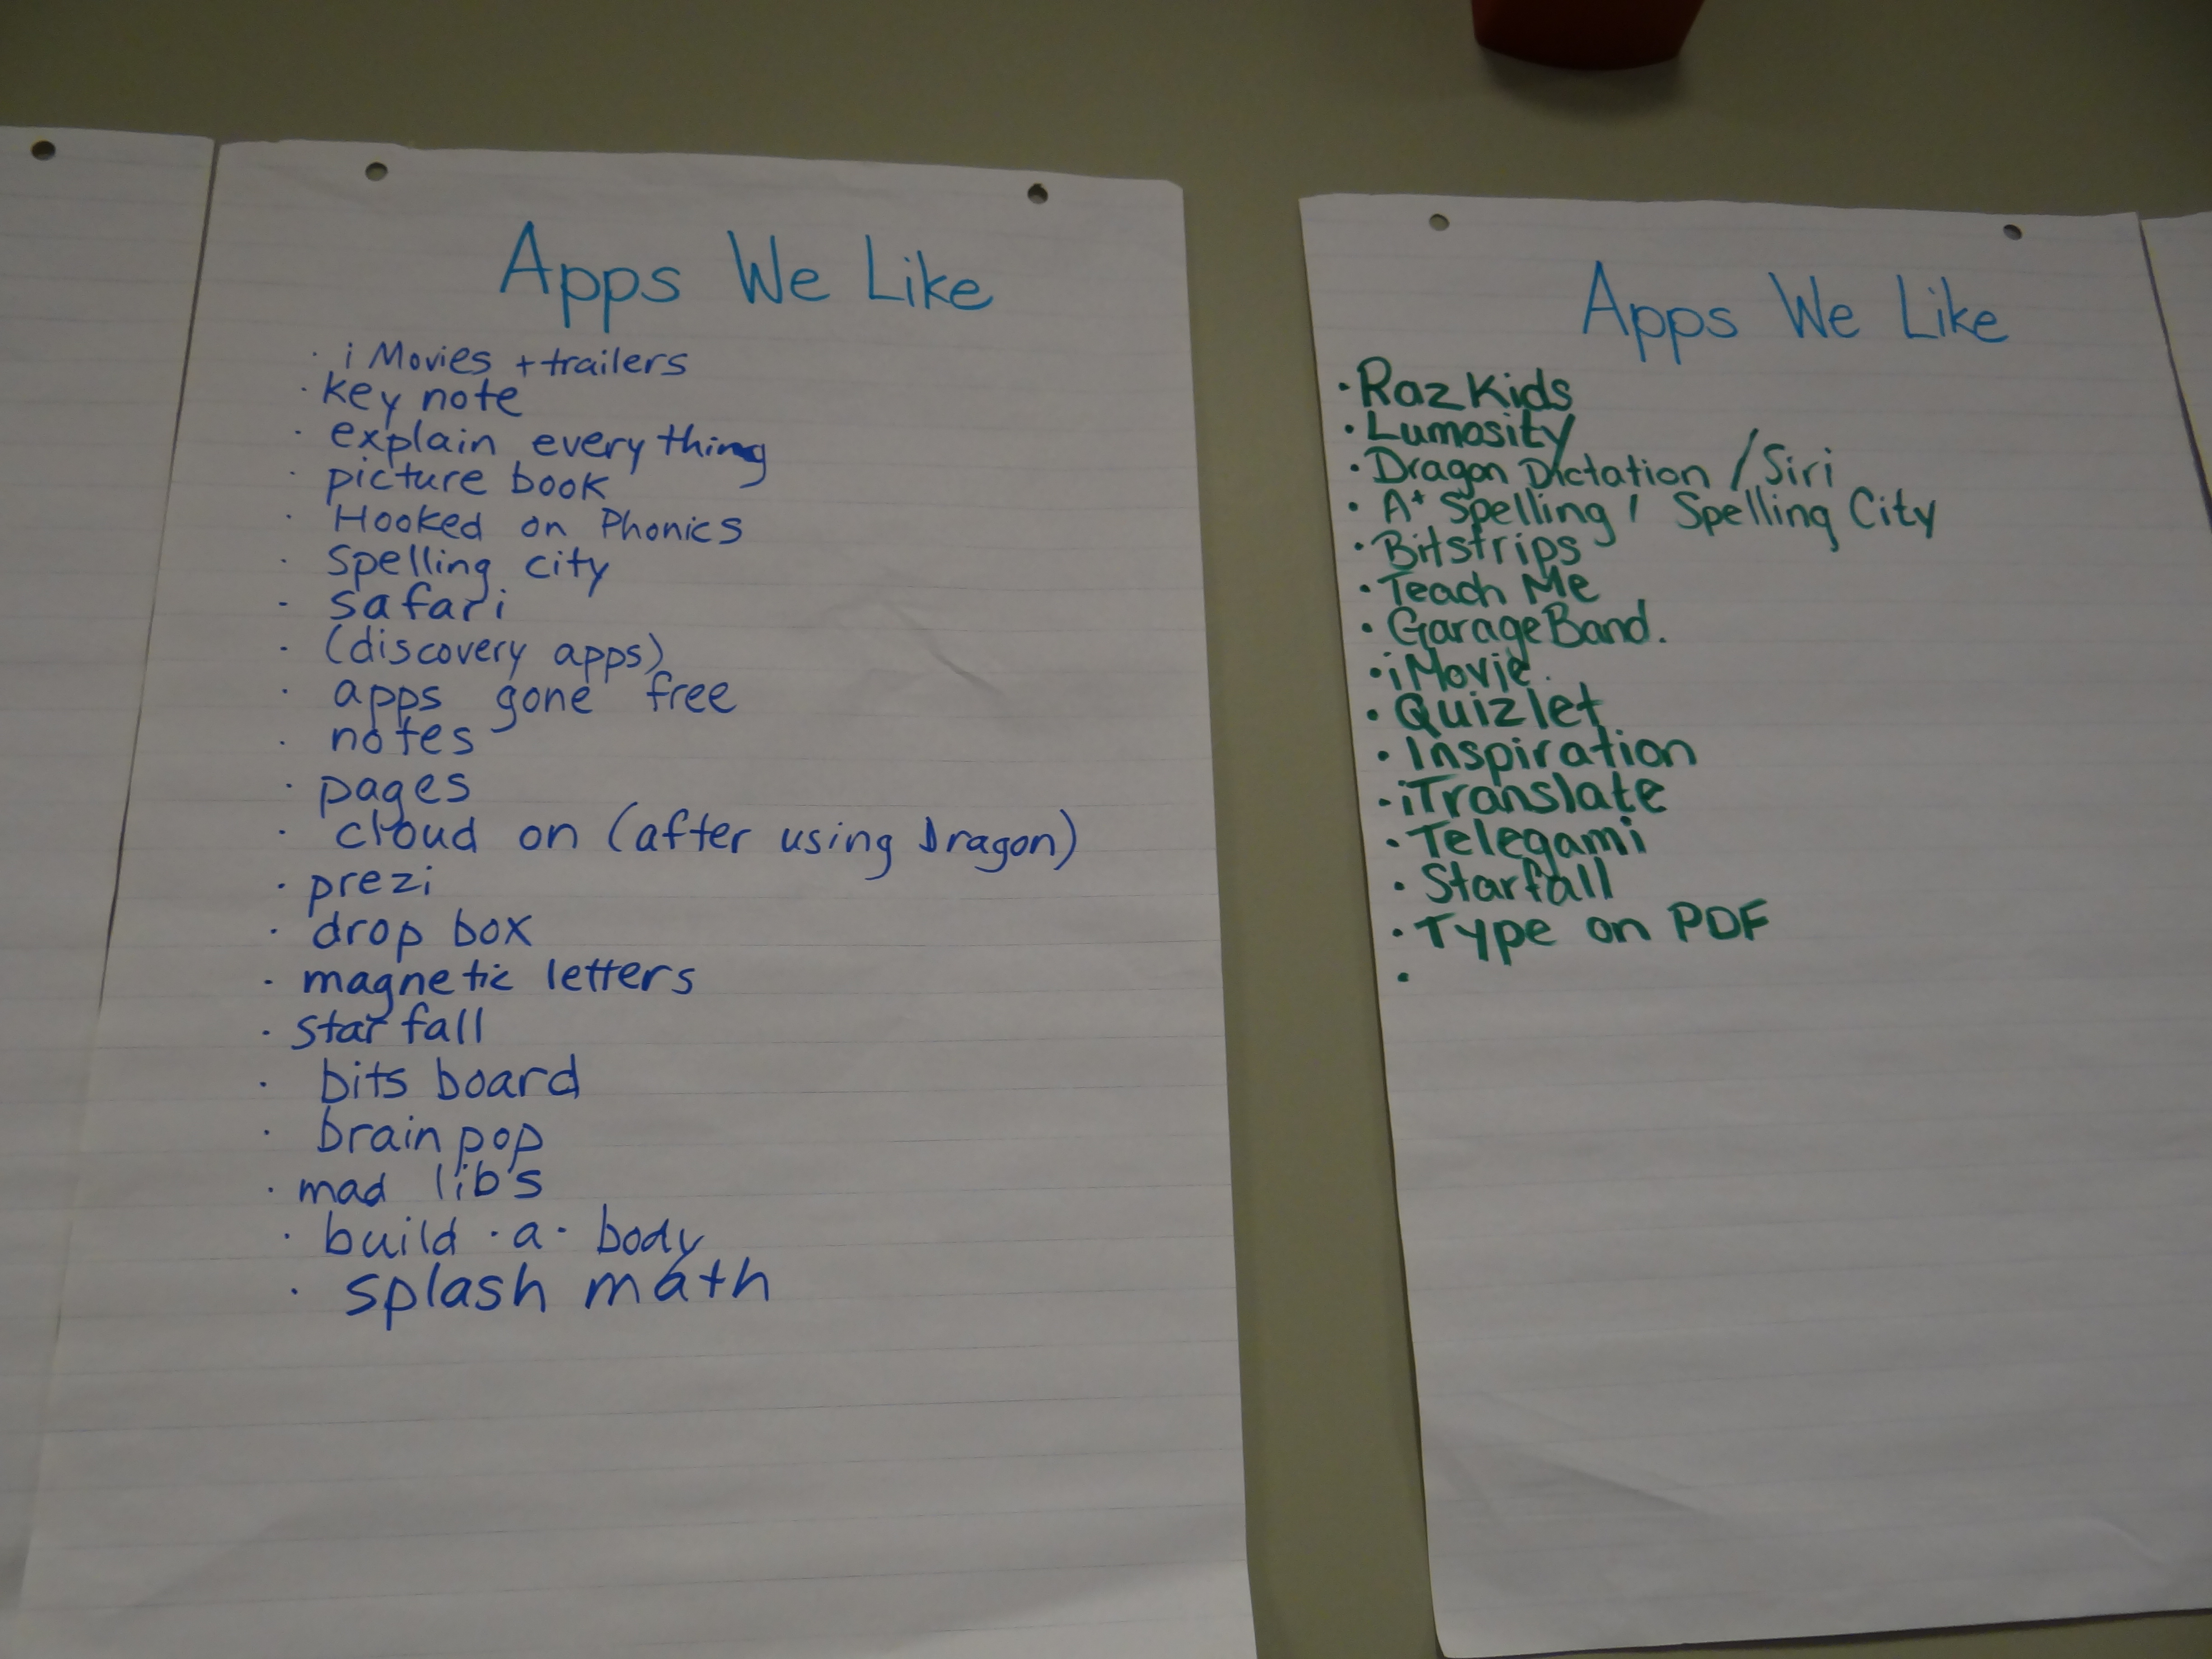 Apps We Like
· i Movies + trailers
· key note
· explain everything
· picture book
· Hooked on Phonics
· spelling city
- safari
- (discovery apps)
· apps gone free
· notes
· pages
· cloud on (after using Dragon)
· prezi
· drop box
· magnetic letters
· star fall
· bits board
· brain pop
· mad lib's
· build · a · body
· splash math
Apps We Like
· Raz Kids
· Lumosity
· Dragon Dictation / Siri
· A+ Spelling / Spelling City
· Bitstrips
· Teach Me
· GarageBand.
· iMovie.
· Quizlet
· Inspiration
· iTranslate
· Telegami
· Starfall
· Type on PDF
·